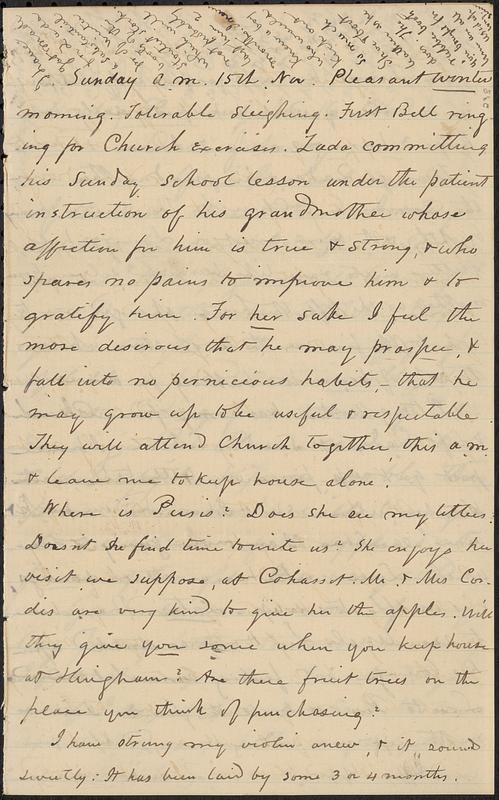 Sunday a.m. 15th Nov. Pleasant winter
morning. Tolerable sleighing. First Bell ring-
ing for Church exercises. Zada committing
his Sunday School lesson under the patient
instruction of his grandmother whose
affection for him is true & strong, & who
spares no pains to improve him & to
gratify him. For her sake I feel the
more desirous that he may prosper, &
fall into no pernicious habits,- that he
may grow up to be useful & respectable.
They will attend Church together this a.m.
& leave me to keep house alone.
Where is Persis? Does she see my letters?
Doesnt she find time to write us? She enjoys her
visit we suppose, at Cohasset. Mr. & Mrs Cor-
dis are very kind to give her the apples. Will
they give you some when you keep house
at Hingham? Are there fruit trees on the
place you think of purchasing?
I have strung my violin anew, & it sounds
sweetly: It has been laid by some 3 or 4 months.